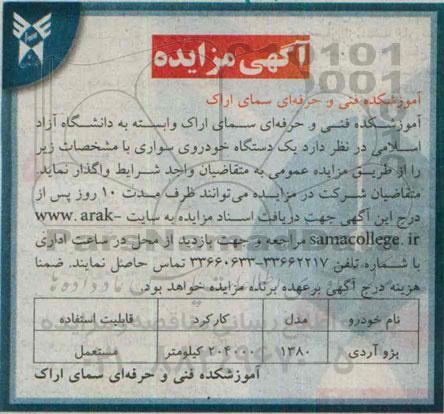 آگهی مزایده
آموزشکده فنی و حرفه‌ای سمای اراک
آموزشکده فنی و حرفه‌ای سمای اراک وابسته به دانشگاه آزاد
اسلامی در نظر دارد یک دستگاه خودروی سواری با مشخصات زیر
را از طریق مزایده عمومی به متقاضیان واجد شرایط واگذار نماید.
متقاضیان شرکت در مزایده می‌توانند ظرف مدت ۱۰ روز پس از
درج این آگهی جهت دریافت اسناد مزایده به سایت www. arak-
samacollege. ir مراجعه و جهت بازدید از محل در ساعت اداری
با شماره تلفن ۳۳۶۶۲۲۱۷-۳۳۶۶۰۶۳۳ تماس حاصل نمایند. ضمنا
هزینه درج آگهی برعهده برنده مزایده خواهد بود.
نام خودرو مدل کارکرد قابلیت استفاده
پژو آردی ۱۳۸۰ ۲۰۴۰۰۰ کیلومتر مستعمل
آموزشکده فنی و حرفه‌ای سمای اراک